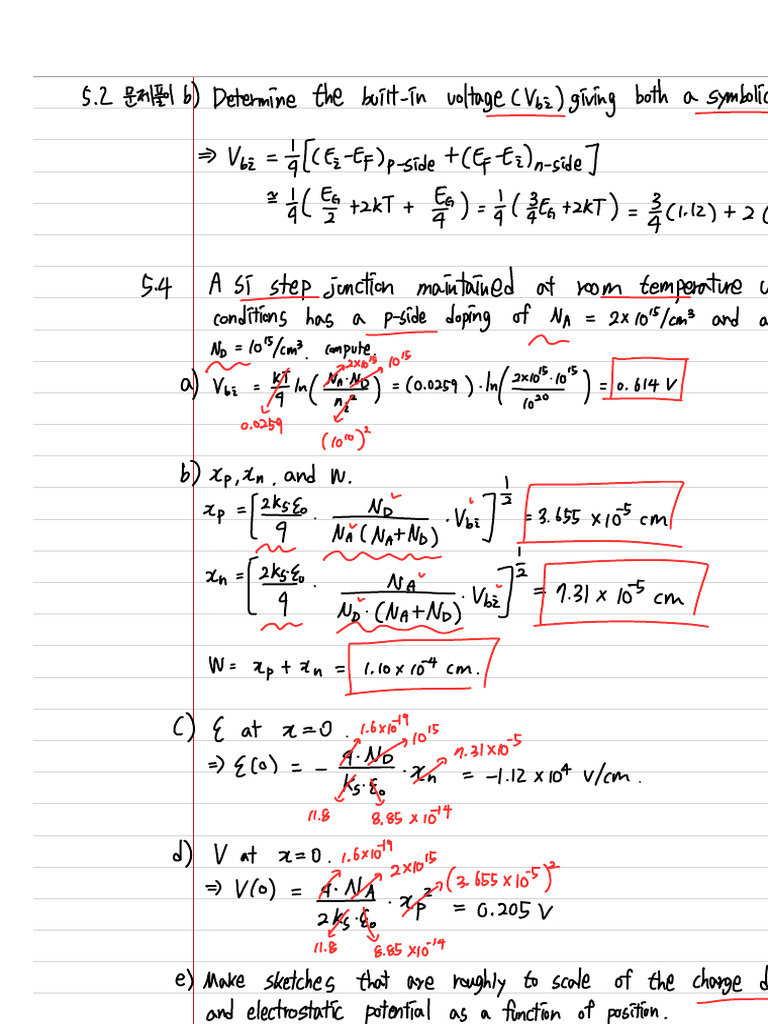 5.2 문제풀이 b) Determine the built-in voltage (Vbi) giving both a symbolic
⇒ Vbi = 1/q [(Ei-EF)p-side + (EF-Ei)n-side]
≅ 1/q (EG/2 + 2kT + EG/4) = 1/q (3/4 EG + 2kT) = 3/4 (1.12) + 2 (
5.4 A Si step junction maintained at room temperature
conditions has a p-side doping of NA = 2×10¹⁵/cm³ and a
ND = 10¹⁵/cm³. compute.
2×10¹⁵ 10¹⁵
a) Vbi = kT/q ln(NA·ND/ni²) = (0.0259)·ln(2×10¹⁵·10¹⁵/10²⁰) = 0.614 V
0.0259 (10¹⁰)²
b) xp, xn, and W.
xp = [2ksε0/q · ND/NA(NA+ND) · Vbi]^1/2 = 3.655 ×10⁻⁵ cm
xn = [2ks·ε0/q · NA/ND·(NA+ND) · Vbi]^1/2 = 7.31 × 10⁻⁵ cm
W = xp + xn = 1.10×10⁻⁴ cm.
c) ε at x=0.
1.6×10⁻¹⁹ 10¹⁵ 7.31×10⁻⁵
⇒ ε(0) = - q·ND/ks·ε0 · xn = -1.12 × 10⁴ V/cm.
11.8 8.85 ×10⁻¹⁴
d) V at x=0. 1.6×10⁻¹⁹ 2×10¹⁵ (3.655 ×10⁻⁵)²
⇒ V(0) = q·NA/2ks·ε0 · xp² = 0.205 V
11.8 8.85 ×10⁻¹⁴
e) Make sketches that are roughly to scale of the charge d
and electrostatic potential as a function of position.